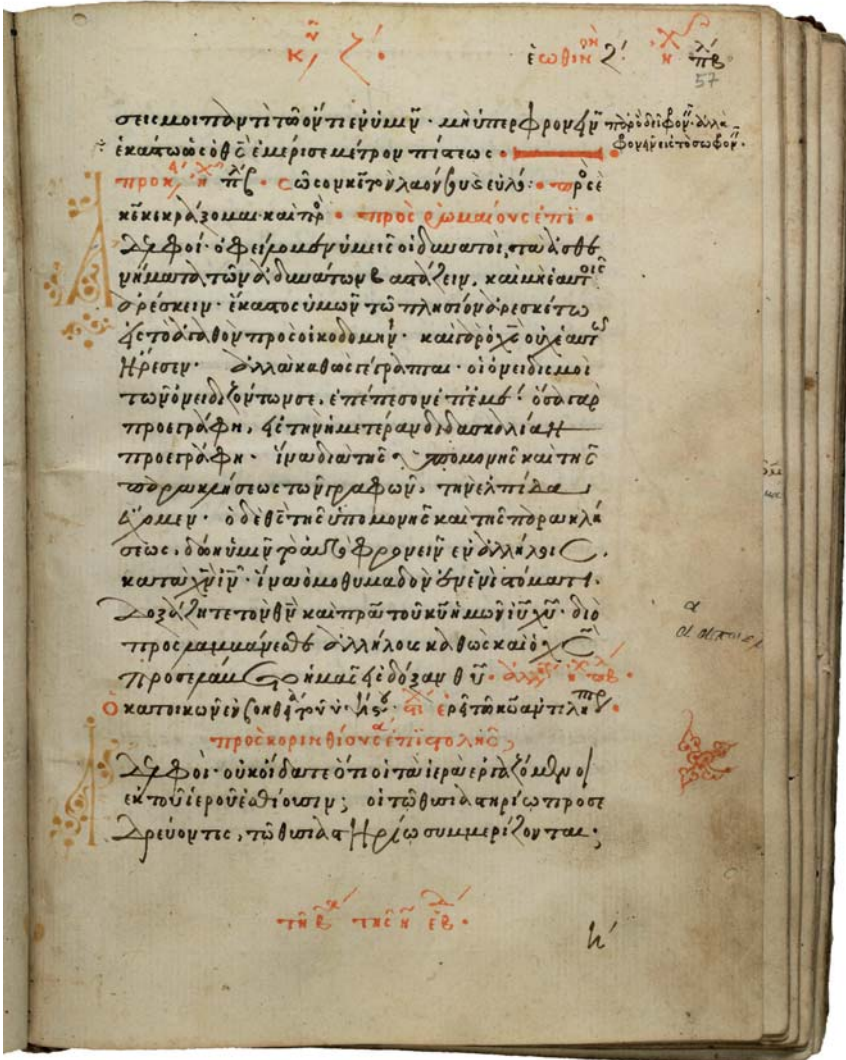 57
σεις μοι παντὶ τῶ ὄντι ἐν ὑμῖν · μὴ ὑπερφρονεῖν παρ' ὃ δεῖ φρονεῖν · ἀλλὰ
ἑκάστω ὡς ὁ θς ἐμέρισε μέτρον πίστεως · φρονεῖν εἰς τὸ σωφρονεῖν ·
κε κεκράξομαι · πρὸς ρωμαίους ἐπι ·
Ἀδελφοί · ὀφείλομεν ὑμεῖς οἱ δυνατοί, τὰ ἀσθε
νήματα τῶν ἀδυνάτων βαστάζειν, καὶ μὴ ἑαυτοῖς
ἀρέσκειν · ἕκαστος ὑμῶν τῶ πλησίον ἀρεσκέτω
εἰς τὸ ἀγαθὸν πρὸς οἰκοδομήν · καὶ γὰρ ὁ χς οὐχ ἑαυτῶ
ἤρεσεν · ἀλλὰ καθὼς γέγραπται · οἱ ὀνειδισμοὶ
τῶν ὀνειδιζόντων σε, ἐπέπεσον ἐπ' ἐμέ · ὅσα γὰρ
προεγράφη, εἰς τὴν ἡμετέραν διδασκαλίαν
προεγράφη · ἵνα διὰ τῆς ὑπομονῆς καὶ τῆς
παρακλήσεως τῶν γραφῶν, τὴν ἐλπίδα
ἔχομεν · ὁ δὲ θς τῆς ὑπομονῆς καὶ τῆς παρακλή
σεως, δώη ὑμῖν τὸ αὐτὸ φρονεῖν ἐν ἀλλήλοις,
κατὰ χν ιν · ἵνα ὁμοθυμαδὸν ἐν ἑνὶ στόματι
δοξάζητε τὸν θν καὶ πρα τοῦ κυ ἡμῶν ιυ χυ · διὸ
προσλαμβάνεσθε ἀλλήλους καθὼς καὶ ὁ χς
προσελάβετο ἡμᾶς εἰς δόξαν θυ ·
Ὁ κατοικῶν ἐν βοηθεία τοῦ ὑψ · ἐρεῖ τῶ κω ἀντιλήπτωρ ·
πρὸς κορινθίους α ἐπιστολῆς,
Ἀδελφοί · οὐκ οἴδατε ὅτι οἱ τὰ ἱερὰ ἐργαζόμενοι
ἐκ τοῦ ἱεροῦ ἐσθίουσιν; οἱ τῶ θυσιαστηρίω προσε
δρεύοντες, τῶ θυσιαστηρίω συμμερίζονται;